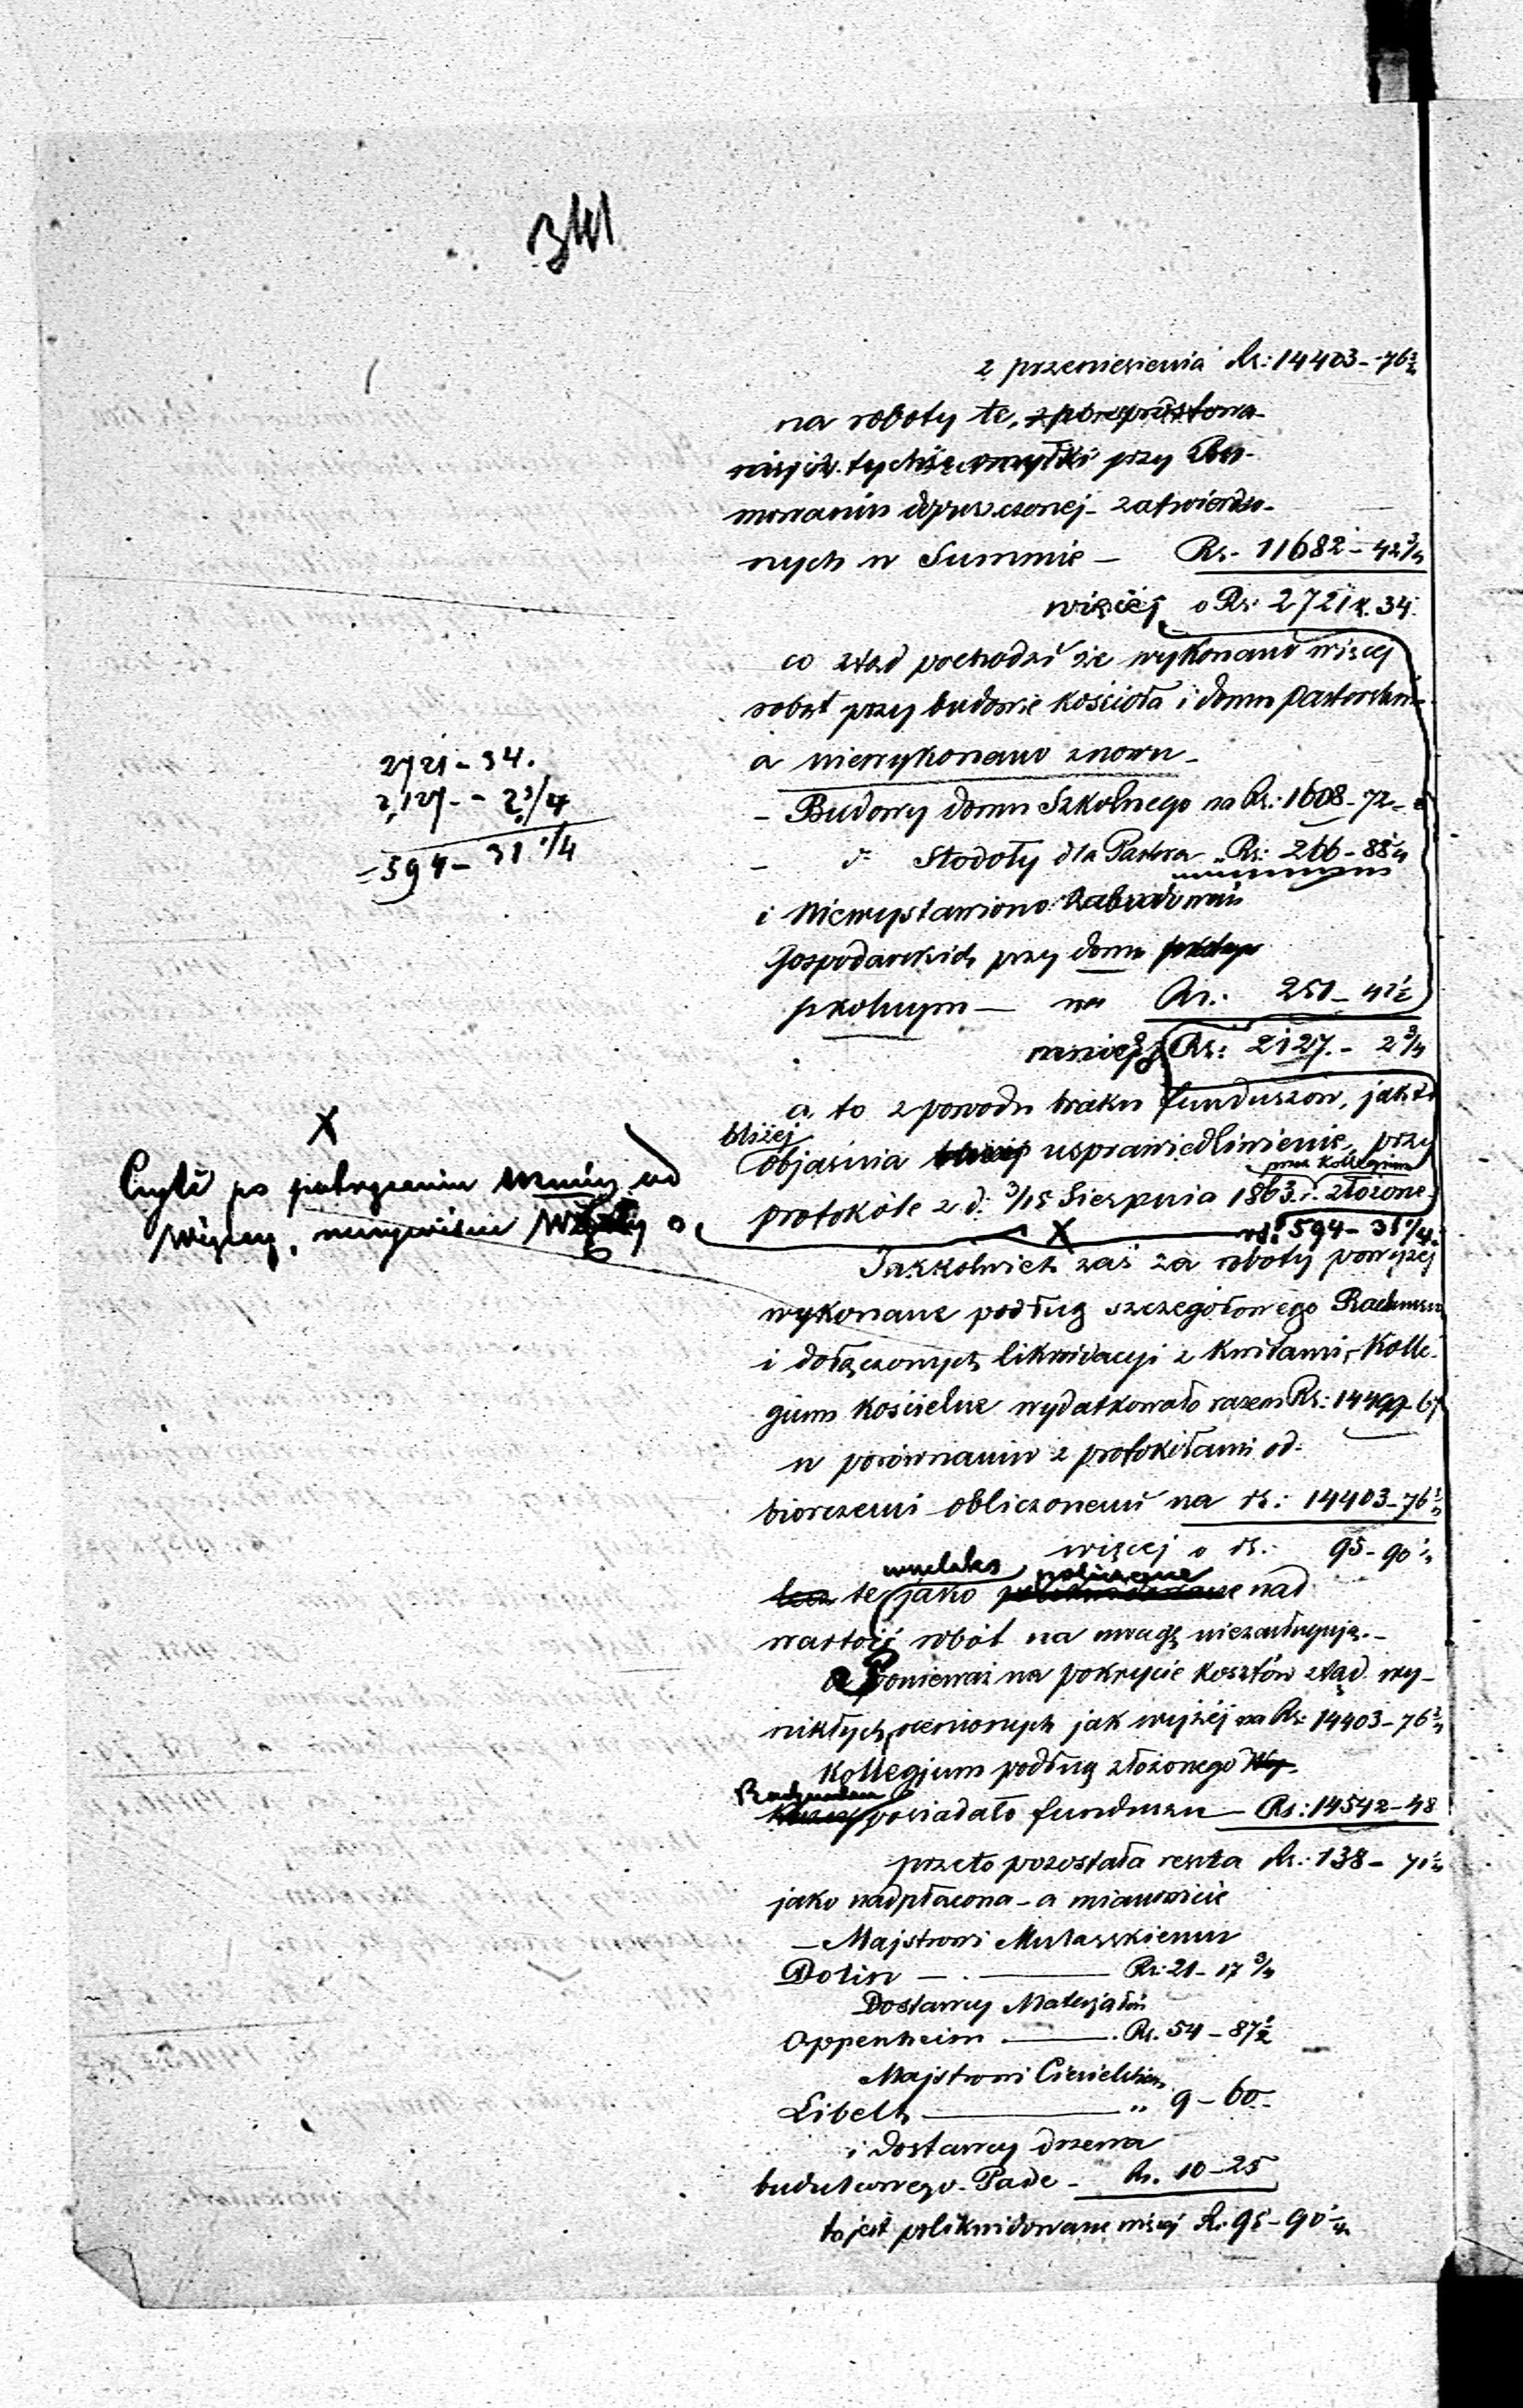 341
z przeniesienia Rs: 14403-76 3/4
na roboty te,
tychże omyłki przy
zatwierdzo-
nych w Summie - Rs. 11682-42 3/4
więcéj o Rs: 2721 k. 34.
co ztąd pochodzi że wykonano więcej
robót przy budowie kościoła i domu
a niewykonano znowu -
- Budowy domu Szkolnego na Rs: 1608-72
- d: Stodoły dla Pastora „ Rs: 266-88 1/4
i Niewystawiono Zabudowań
gospodarskich przy domu
szkolnym - na Rs: 251-41 1/2
mniéj Rs: 2127.- 2 3/4
a, to z powodu braku funduszów, jak to
bliżej
objaśnia usprawiedliwienie, przy
przez Kollegium
protokóle z d. 3/15 Sierpnia 1863 r. złożone
X rs. 594-31 1/4.
2721-34.
2,127-- 2 3/4
=594-31 1/4
X
Czyli po potrąceniu mniéj od
więcéj, rzeczywiście o
Jakkolwiek zaś za roboty powyżej
wykonane podług szczegółowego
i dołączonych likwidacyi z kwitami, Kolle-
gium kościelne wydatkowało razem Rs: 14499-67
w porównaniu z protokółami od-
biorczemi obliczonemi na rs: 14403-76 3/4
więcej o rs: 95-90 1/4
wszelako policzone
te jako nad
wartość robót na uwagę niezasługują.-
Ponieważ na pokrycie kosztów ztąd wy-
nikłych, ocenionych jak wyżéj na Rs: 14403-76 3/4
Kollegium podług złożonego
posiadało funduszu - Rs: 14542-48
przeto pozostała reszta Rs: 138-71 1/4
jako nadpłacona - a mianowicie
- Majstrowi Mularskiemu
Dolin - . - Rs: 21-17 3/4
Dostawcy Materjałów
Oppenheim - . Rs. 54-87 1/2
Majstrowi Ciesielskiem
Libelt - „ 9-60-
i dostawcy drzewa
budulcowego Pade - Rs. 10-25
to jest polikwidowane więcej Rs. 95-90 1/4